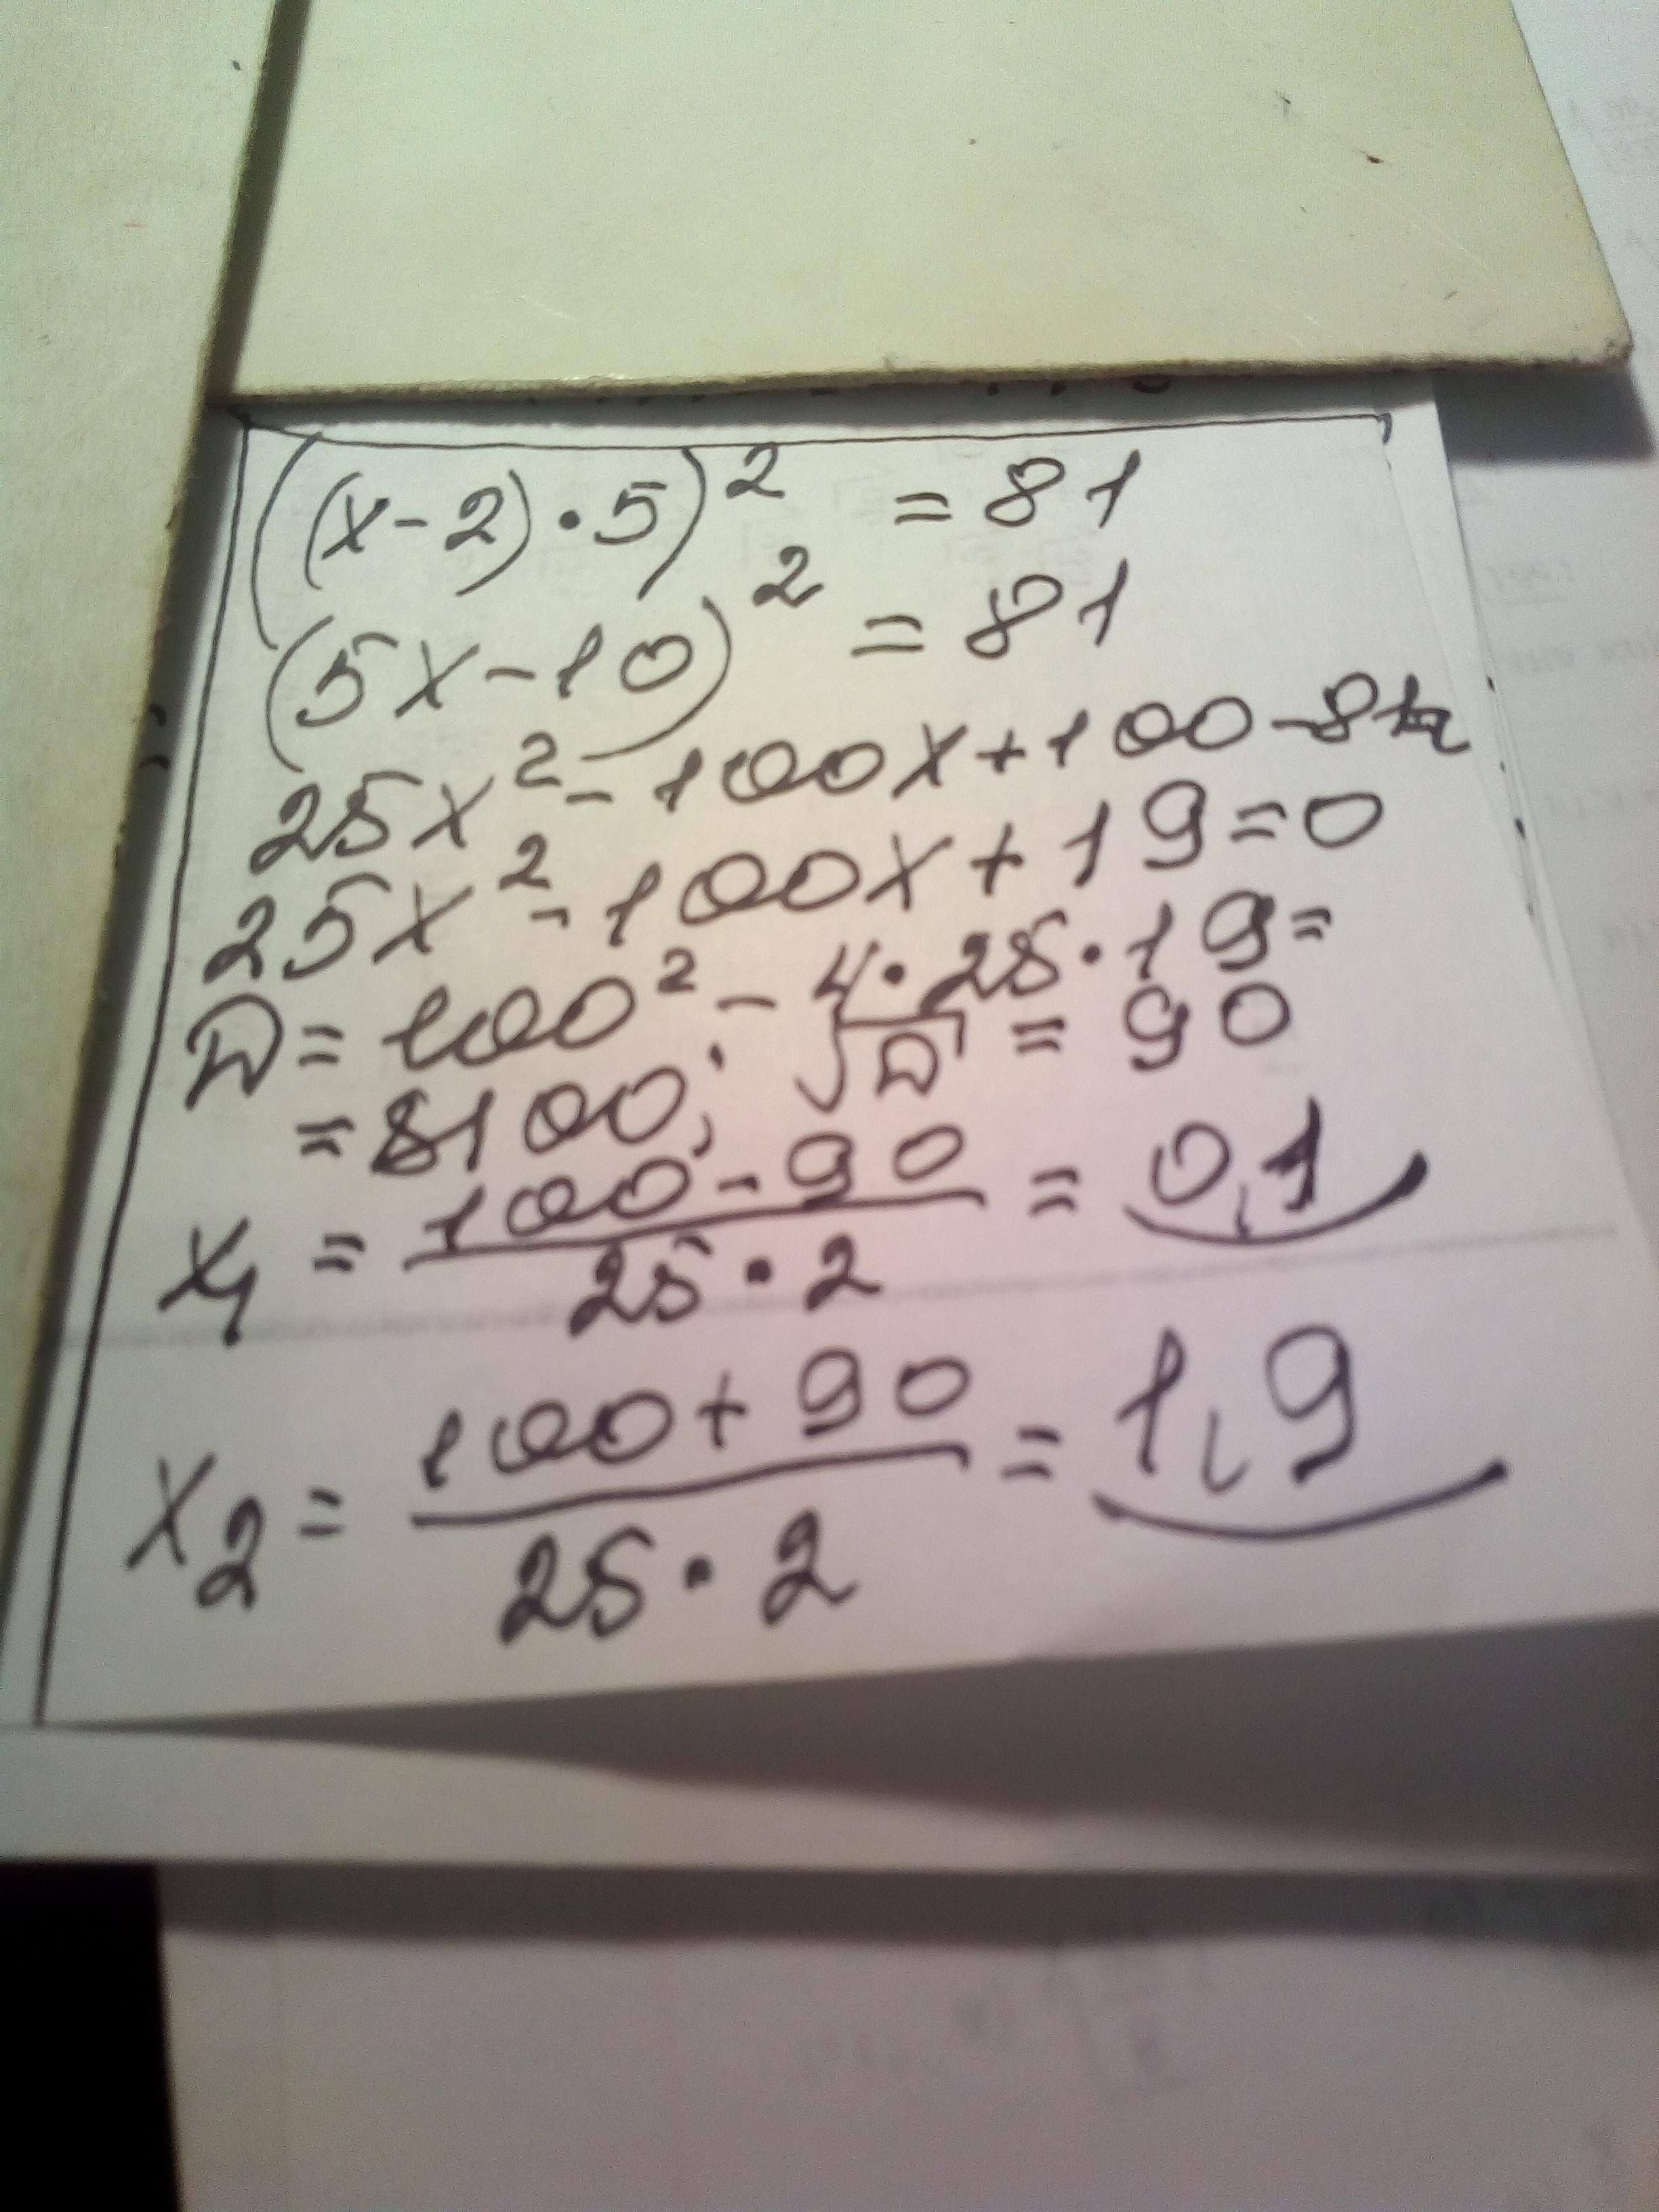 ((x-2)·5)² = 81
(5x-10)² = 81
25x²-100x+100-81=
25x²-100x+19=0
D=100²-4·25·19=
=8100; √D = 90
x₁ = (100-90)/(25·2) = 0,1
x₂ = (100+90)/(25·2) = 1,9